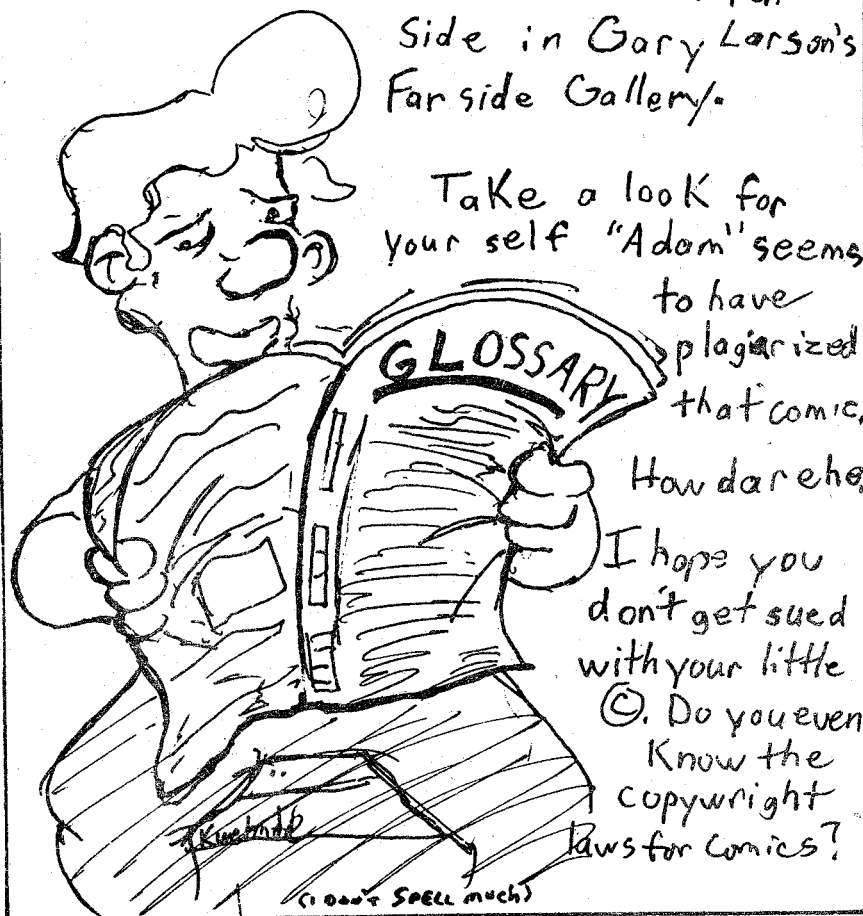 Side in Gary Larson's
Far side Gallery.
Take a look for
your self "Adam" seems
to have
plagiarized
that comic.
How dare he.
I hope you
don't get sued
with your little
©. Do you even
Know the
copywright
laws for Comics?
GLOSSARY
(I DON'T SPELL much)